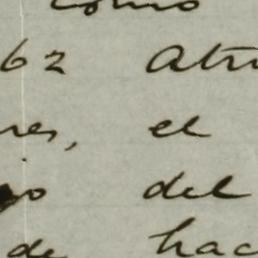 como
62 Atri
res, el
o del
de hac